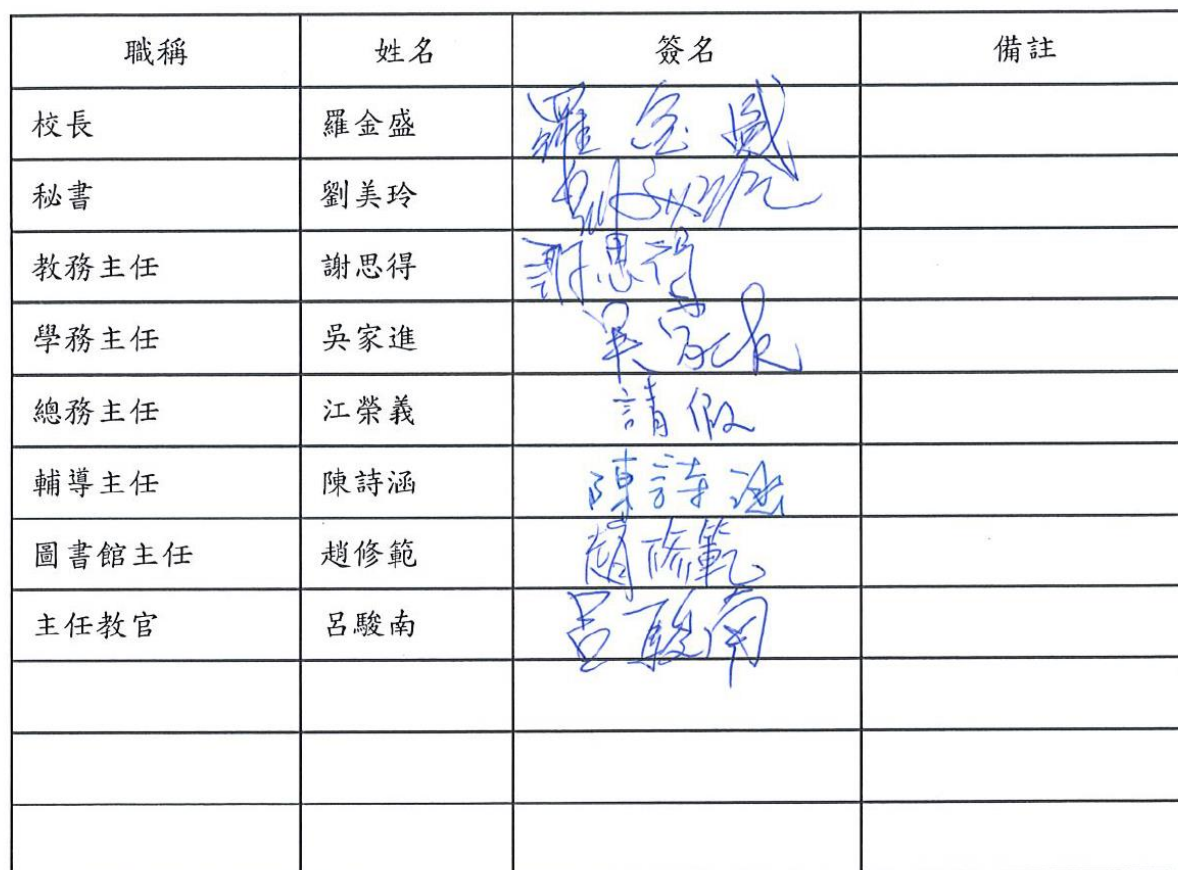 職稱 姓名 簽名 備註
校長 羅金盛 羅金盛
秘書 劉美玲
教務主任 謝思得 謝思得
學務主任 吳家進 吳家進
總務主任 江榮義 請假
輔導主任 陳詩涵 陳詩涵
圖書館主任 趙修範 趙修範
主任教官 呂駿南 呂駿南